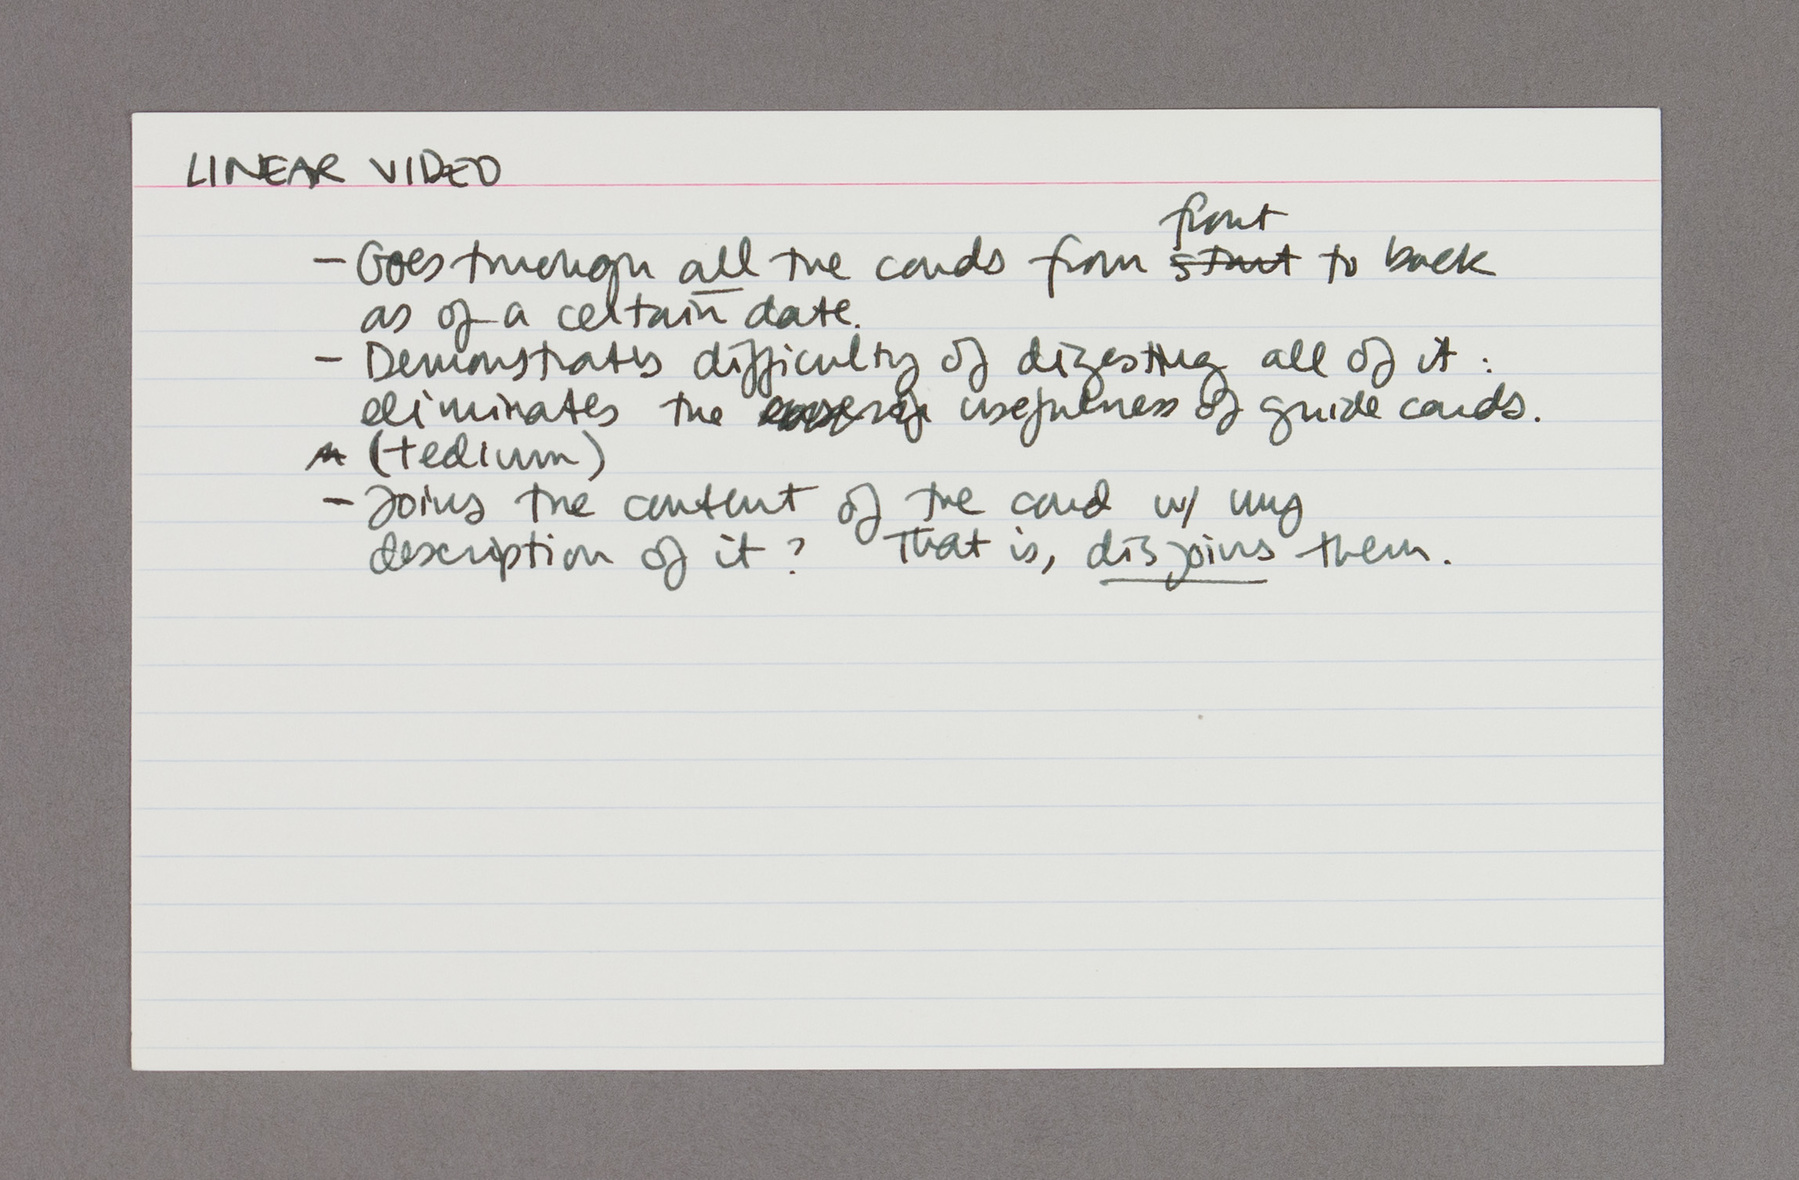 LINEAR VIDEO
front
- Goes through all the cards from start to back
as of a certain date.
- Demonstrates difficulty of digesting all of it:
eliminates the usefulness of guide cards.
(tedium)
- Joins the content of the card w/ my
description of it? That is, disjoins them.